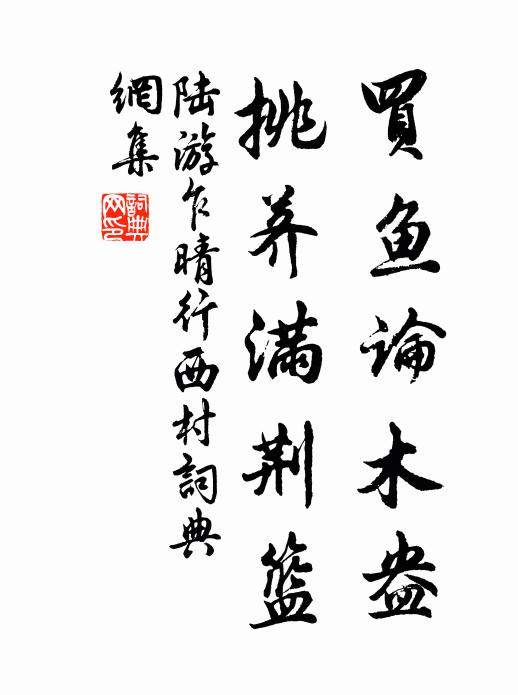 買魚論木盎
挑荠满荆籃
陆游乍晴行西村詞典
網集
詞典网印